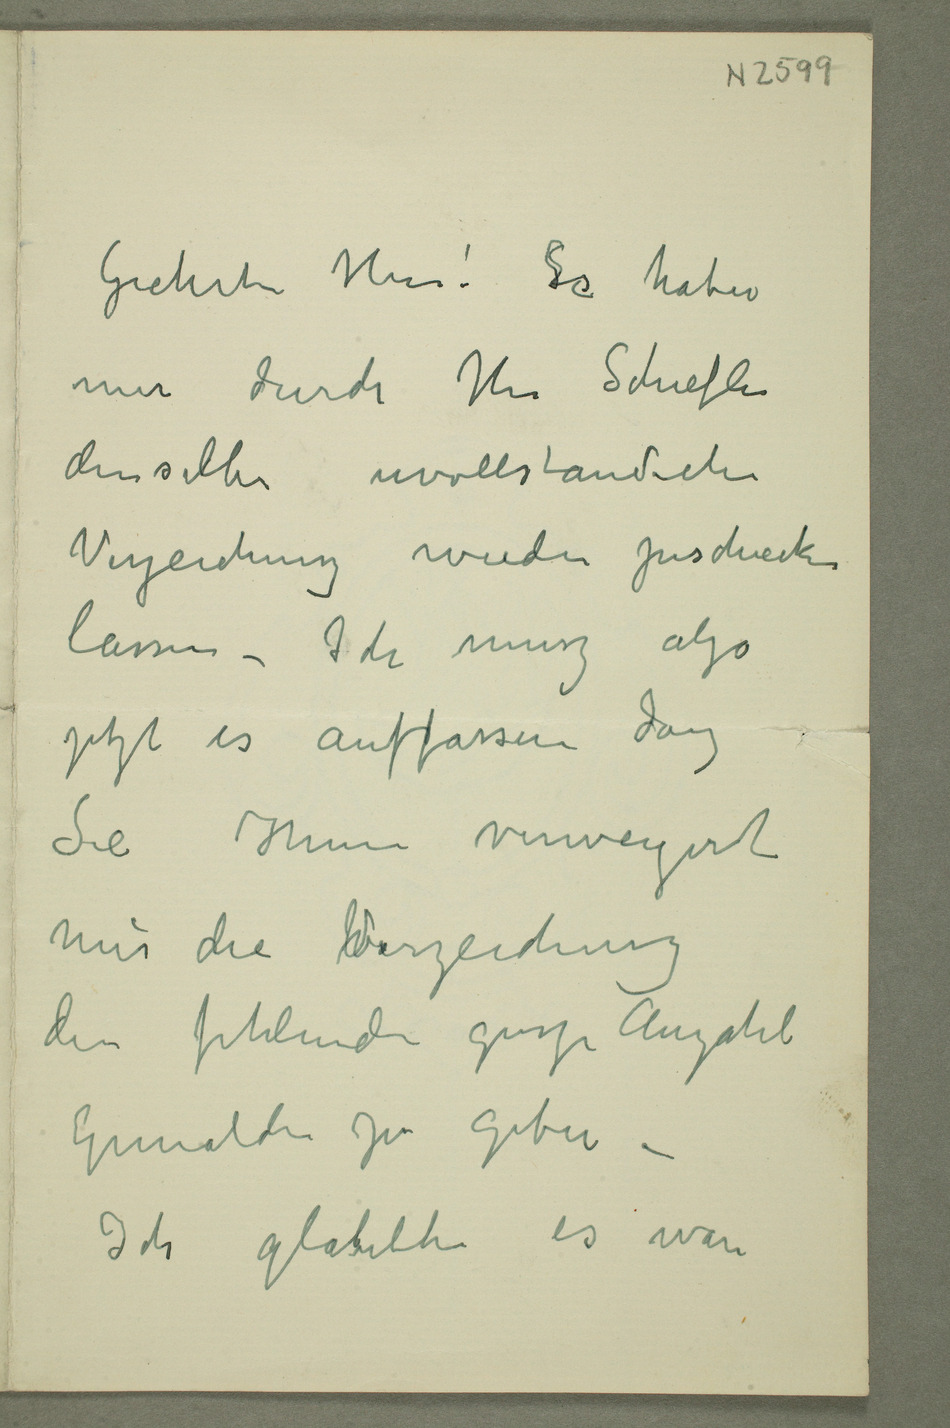 N 2599
Geehrter Herr! Es haben
mir durch Herr Schiefler
denselben uvollständichen
Verzeichnung wieder zuschicken
lassen – Ich musz also
jetzt es auffassen dasz
Sie Ihnen verweigert
mir die Verzeichnung
den fehlenden gross Anzahl
Gemälden zu geben –
Ich glaubthe es war